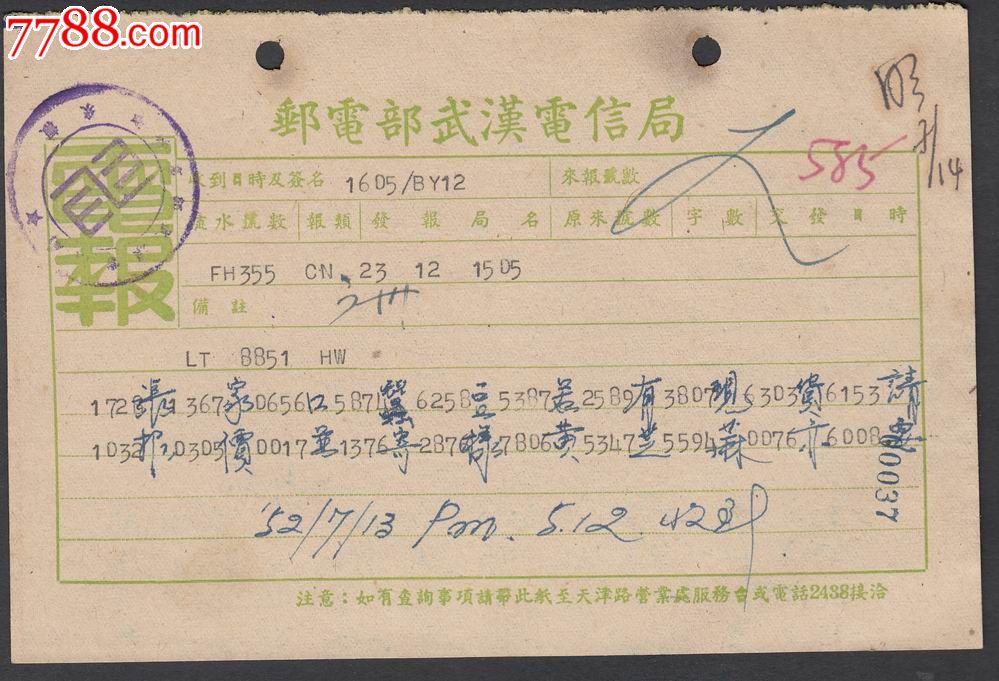 7788.com
郵電部武漢電信局
電報
收到日時及簽名 1605/BY12 來報號數 585
7/14
流水號數 報類 發報局名 原來號數 字數 交發日時
FH355 CN 23 12 1505
備註
LT 8851 HW
1728張1367家0656口5871蠶6258豆5387若2589有3807現6303貨6153請
1032報0303價0017並1376寄2876樣7806黃5347芝5594蔴0076亦6008要
00037
'52/7/13 Pm. 5.12
注意：如有查詢事項請帶此紙至天津路營業處服務台或電話2438接洽